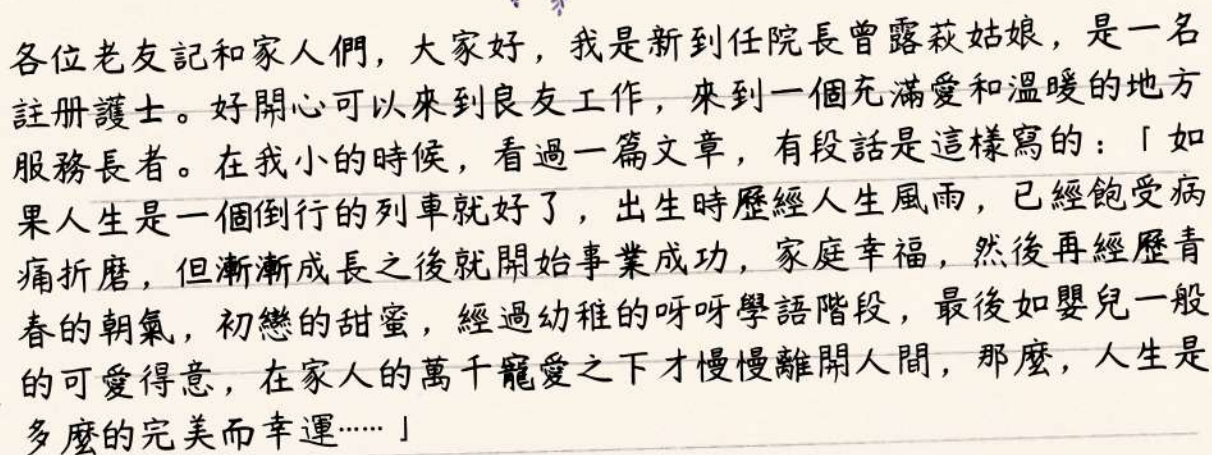 各位老友記和家人們，大家好，我是新到任院長曾露萩姑娘，是一名
註冊護士。好開心可以來到良友工作，來到一個充滿愛和溫暖的地方
服務長者。在我小的時候，看過一篇文章，有段話是這樣寫的：「如
果人生是一個倒行的列車就好了，出生時歷經人生風雨，已經飽受病
痛折磨，但漸漸成長之後就開始事業成功，家庭幸福，然後再經歷青
春的朝氣，初戀的甜蜜，經過幼稚的呀呀學語階段，最後如嬰兒一般
的可愛得意，在家人的萬千寵愛之下才慢慢離開人間，那麼，人生是
多麼的完美而幸運……」